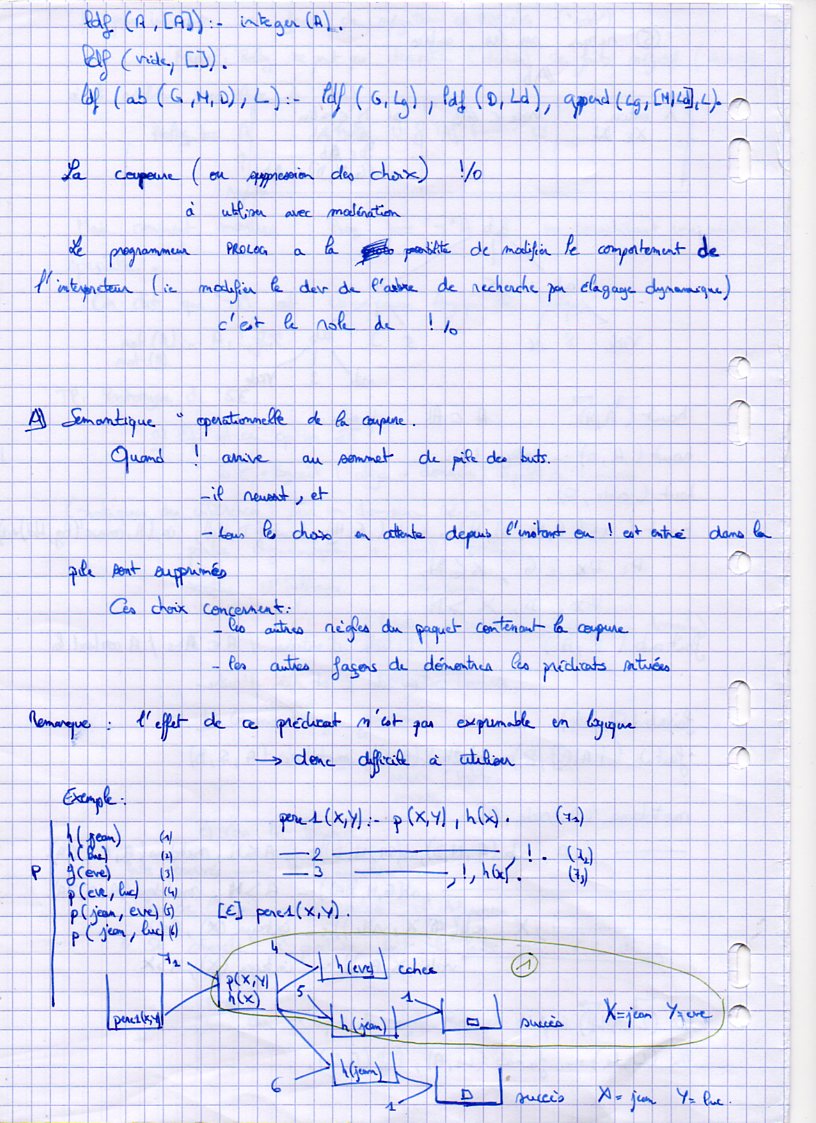 ldf (A, [A]) :- integer (A).
ldf (vide, []).
ldf (ab (G, M, D), L) :- ldf (G, Lg), ldf (D, Ld), append (Lg, [M|Ld], L).
La coupure (ou suppression des choix) !/0
à utiliser avec modération
Le programmeur PROLOG a la possibilité de modifier le comportement de
l'interpréteur (ie modifier le dev de l'arbre de recherche par élagage dynamique)
c'est le role de !/0
A) Semantique operationnelle de la coupure.
Quand ! arrive au sommet de pile des buts.
- il reussit, et
- tous les choix en attente depuis l'instant ou ! est entré dans la
pile sont supprimés
Ces choix concernent :
- les autres règles du paquet contenant la coupure
- les autres façons de démontrer les prédicats situées
Remarque : l'effet de ce prédicat n'est pas exprimable en logique
→ donc difficile à utiliser
Exemple :
pere1(X,Y) :- p(X,Y), h(X). (7₁)
2 , !. (7₂)
3 , !, h(X). (7₃)
P
h(jean) (1)
h(luc) (2)
f(eve) (3)
p(eve, luc) (4)
p(jean, eve) (5)
p(jean, luc) (6)
[E] pere1(X,Y).
7₁
pere1(X,Y)
p(X,Y)
h(X)
4
h(eve) echec
1
5
h(jean)
1
□ succès X=jean Y=eve
6
h(jean)
1
□ succès X=jean Y=luc.